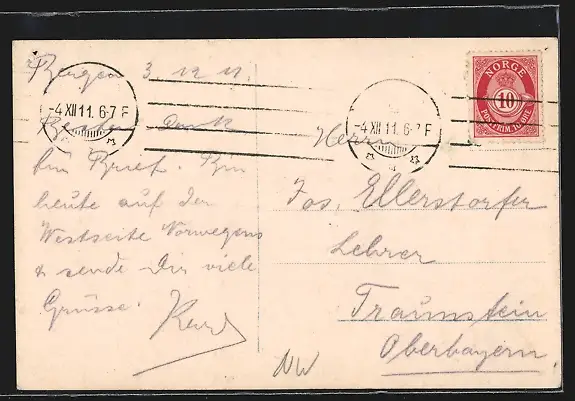 Bergen 3. 12. 11.
-4 XII 11. 6-7 F
-4 XII 11. 6-7 F
NORGE
10
POSTFRIM. 10 ØRE
Besten Dank
für Brief. Bin
heute auf der
Westseite Norwegens
& sende Dir viele
Grüsse.
Herrn
Jos. Ellerstorfer
Lehrer
Traunstein
Oberbayern
NW